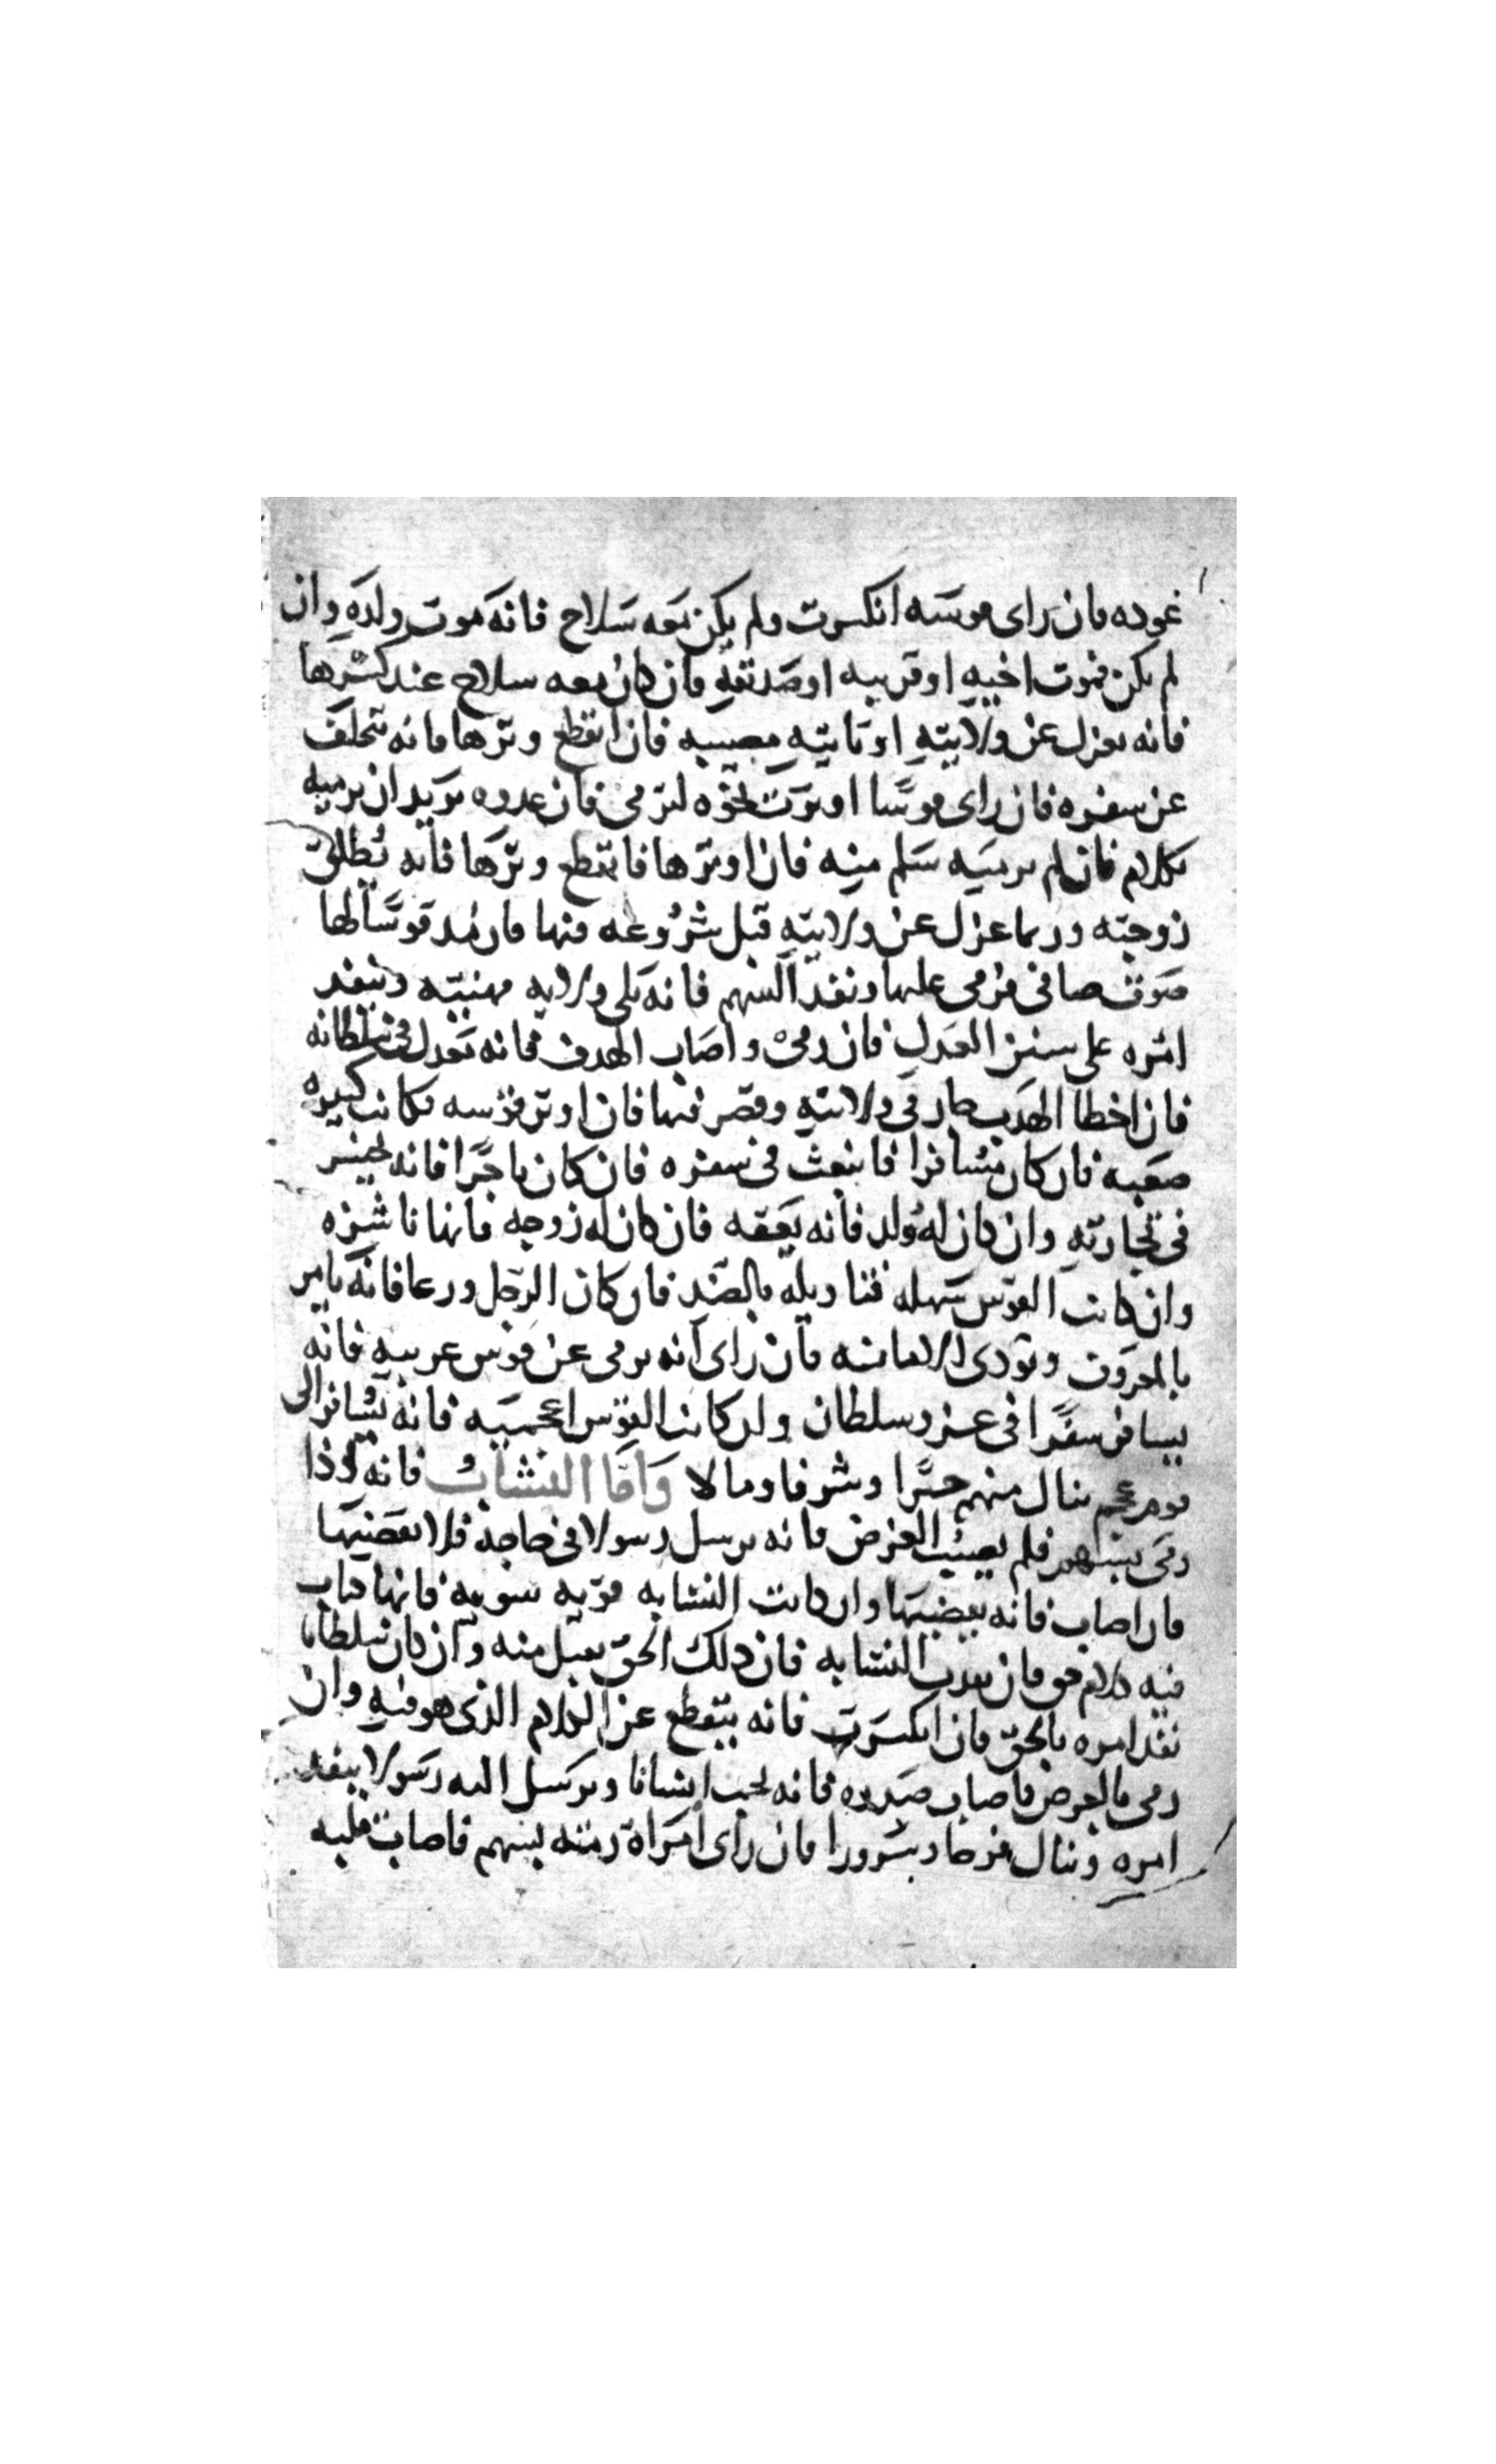 عوده فان راى قوسه انكسرت ولم يكن معه سلاح فانه موت ولده وان
لم يكن فموت اخيه او قريبه او صديقه فان كان معه سلاح عند كسرها
فانه يعزل عن ولايته او تاتيه مصيبه فان انقطع وترها فانه يتخلف
عن سفره فان راى قوسًا اوترت نحوه لترمى فان عدوه يريد ان يرميه
بكلام فان لم يرميه سلم منه فان اوترها فانقطع وترها فانه تطلق
زوجته وربما عزل عن ولايته قبل شروعه فيها فان مد قوسًا لها
صوت صافى فرمى عليها ونفد السهم فانه يلى ولايه مهنيته وينفد
امره على سنن العدل فان رمى واصاب الهدف فانه يعدل فى سلطانه
فان اخطا الهدف جار فى ولايته وقصر فيها فان اوتر قوسه فكانت كبيره
صعبه فان كان مسافرا فابتعث فى سفره فان كان تاجرًا فانه يخسر
فى تجارته وان كان له ولد فانه يعقه فان كان له زوجه فانها ناشزه
وان كانت القوس سهله فتاويله بالضد فان كان الرجل ورعا فانه يامر
بالمعروف ويودى الامانه فان راى انه يرمى عن قوس عربيه فانه
يسافر سفرًا فى عز وسلطان وان كانت القوس اعجميه فانه يسافر الى
قوم عجم ينال منهم خيرًا وشرفا ومالا وَامّا النشابُ فانه اذا
رمى بسهم فلم يصيب الغرض فانه يرسل رسولا فى حاجة فلا يقضيها
فان اصاب فانه يقضيها وان كانت النشابه قويه سويه فانها كتاب
فيه كلام حق فان نفدت النشابه فان ذلك الحق يقبل منه وان كان سلطانا
نفد امره بالحق فان انكسرت فانه ينقطع عن الكلام الذى هو فيه وان
رمى بالغرض فاصاب صدره فانه يحب انسانا ويرسل اليه رسولا ينفد
امره وينال فرحا وسرورا فان راى امراة رمته بسهم فاصاب قلبه